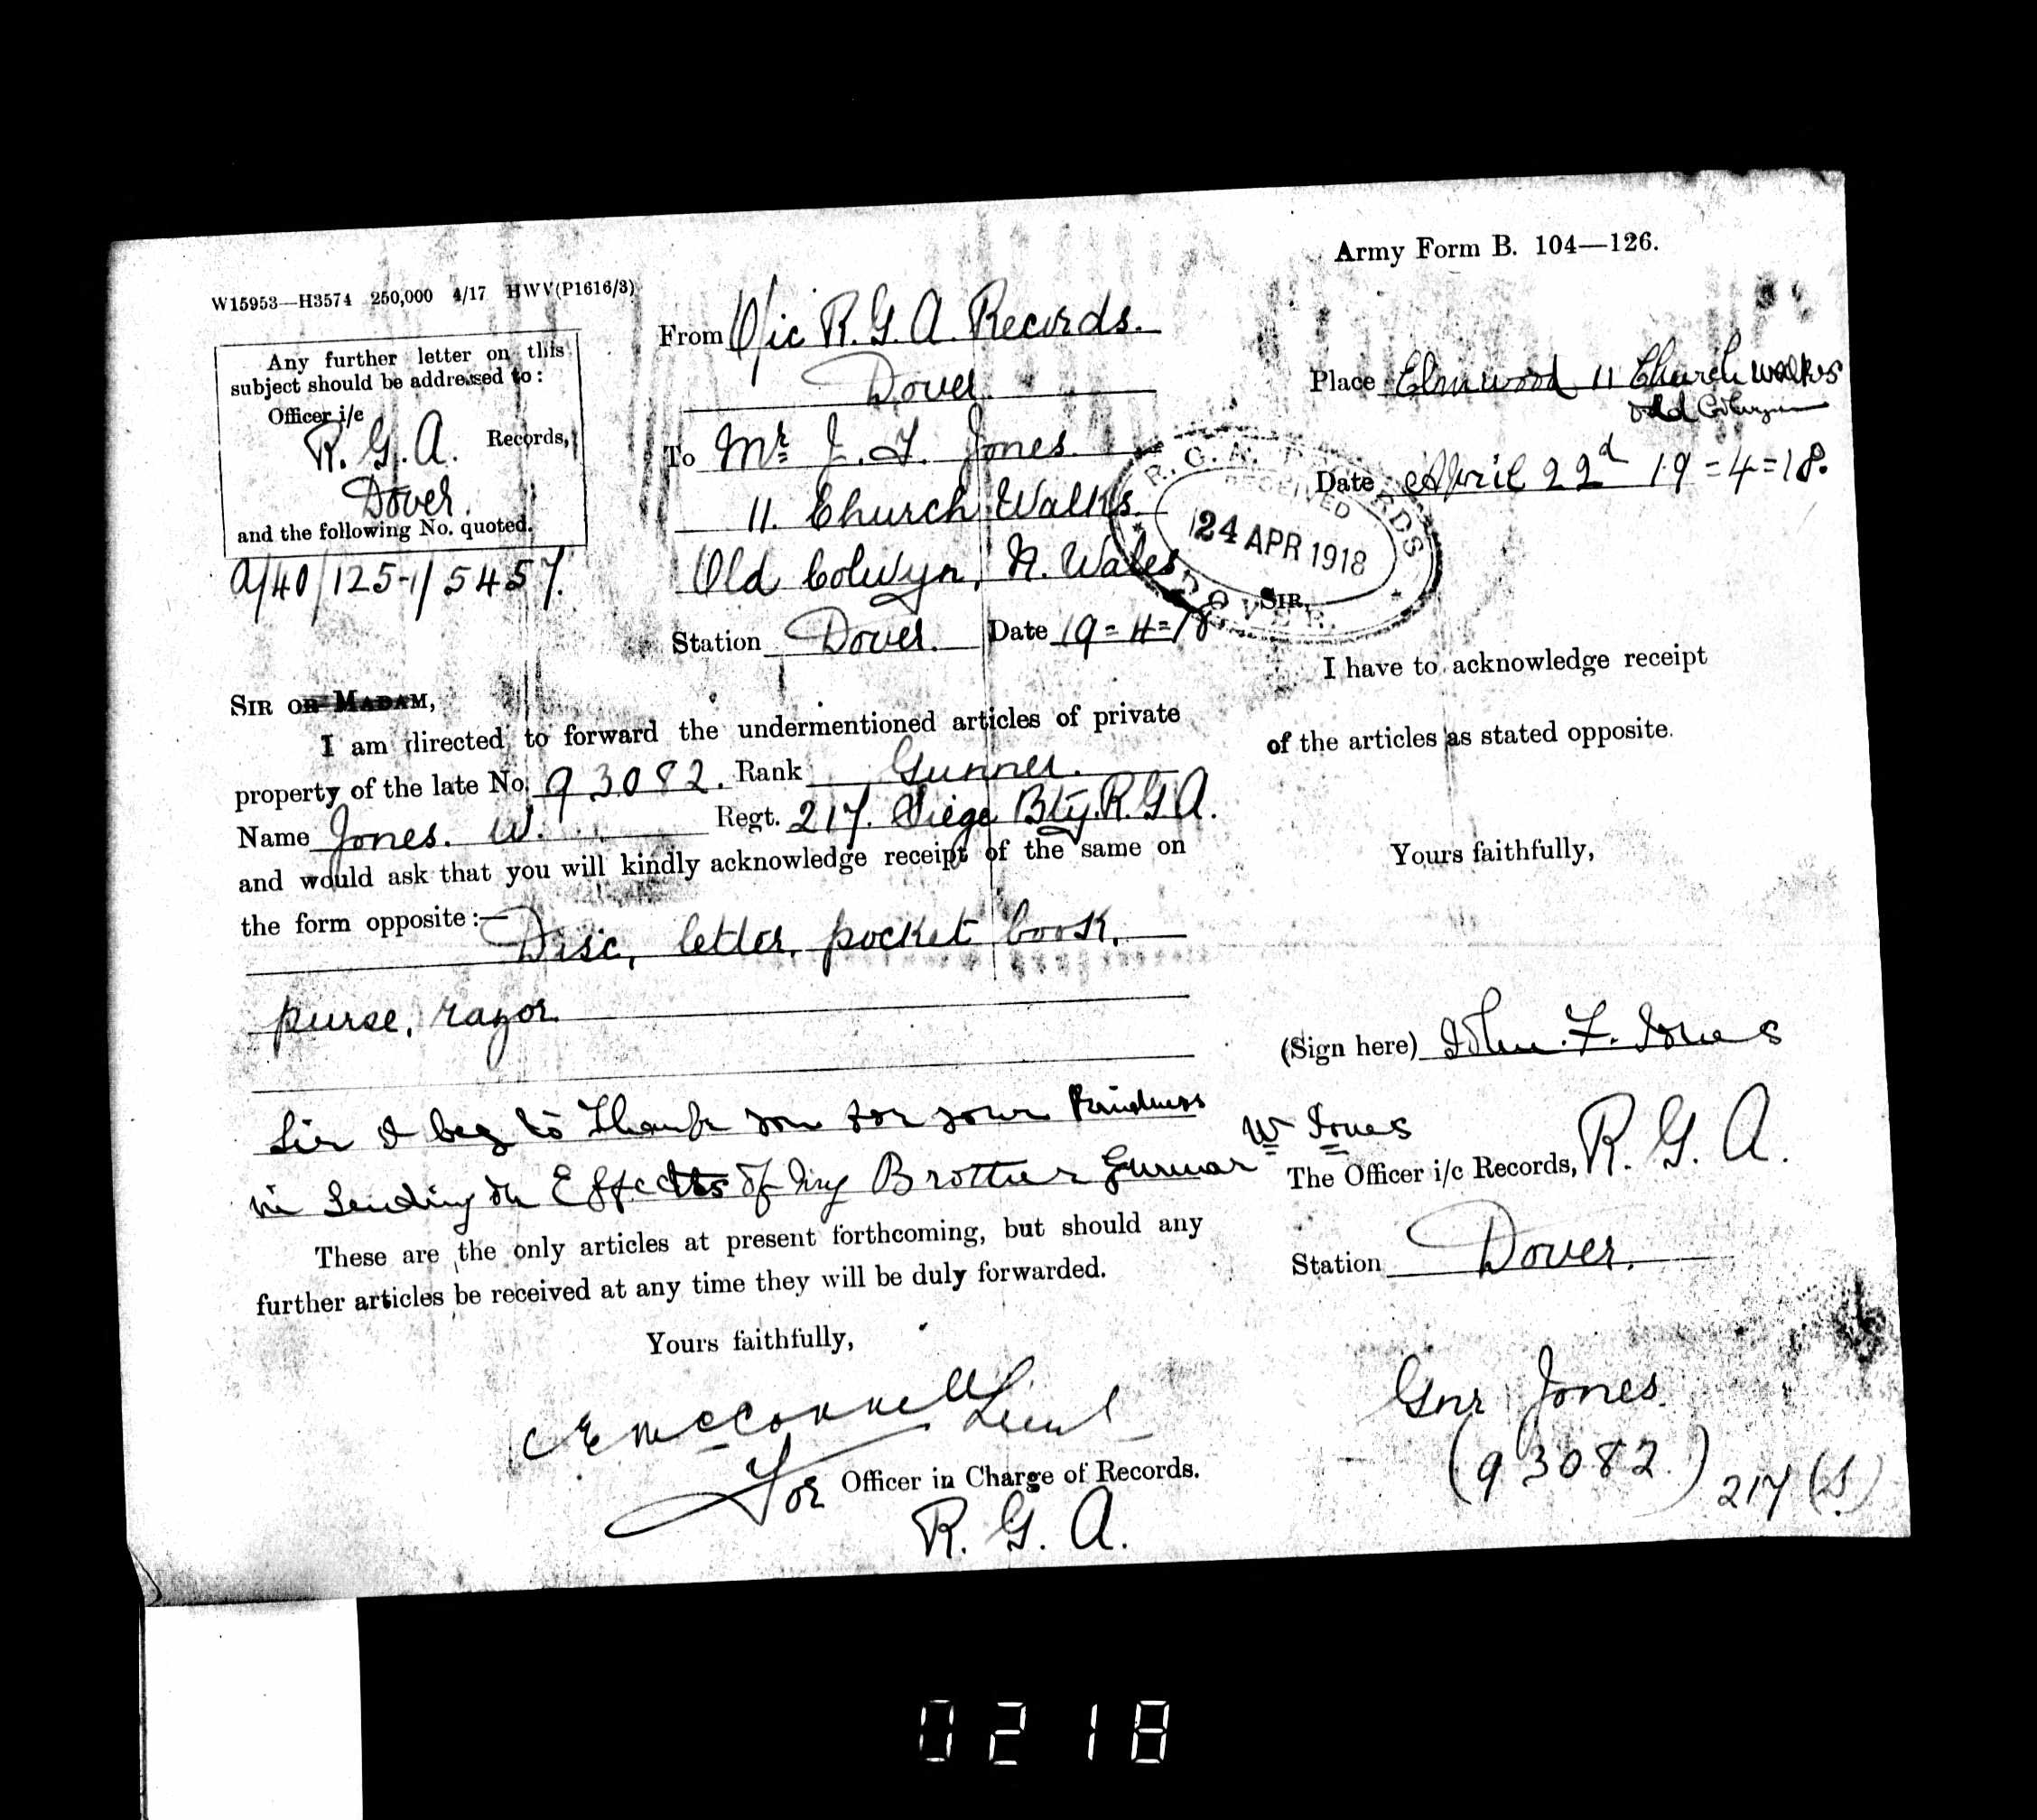 Army Form B. 104—126.
W15953—H3574 250,000 4/17 HWV(P1616/3)
Any further letter on this
subject should be addressed to:
Officer i/c
R. G. A. Records,
Dover.
and the following No. quoted.
A/40/125-1/5457.
From O/ic R. G. A. Records.
Dover
To Mr J. F. Jones.
11. Church Walks.
Old Colwyn, N. Wales
Station Dover. Date 19=4=18
SIR OR MADAM,
I am directed to forward the undermentioned articles of private
property of the late No. 93082. Rank Gunner.
Name Jones. W. Regt. 217. Siege Bty. R. G. A.
and would ask that you will kindly acknowledge receipt of the same on
the form opposite:— Disc, letter, pocket book,
purse, razor
Sir I beg to Thank you for your Kindness
in Sending the Effects of my Brother Gunnar W Jones
These are the only articles at present forthcoming, but should any
further articles be received at any time they will be duly forwarded.
Yours faithfully,
C E McConnell Lieut
For Officer in Charge of Records.
R. G. A.
Place Elmwood 11 Church walks
Old Colwyn
Date April 22d 19=4=18.
R. G. A. RECORDS
RECEIVED
24 APR 1918
DOVER.
SIR,
I have to acknowledge receipt
of the articles as stated opposite.
Yours faithfully,
(Sign here) John. F. Jones
The Officer i/c Records, R. G. A.
Station Dover.
Gnr Jones.
(93082.) 217 (S)
0218